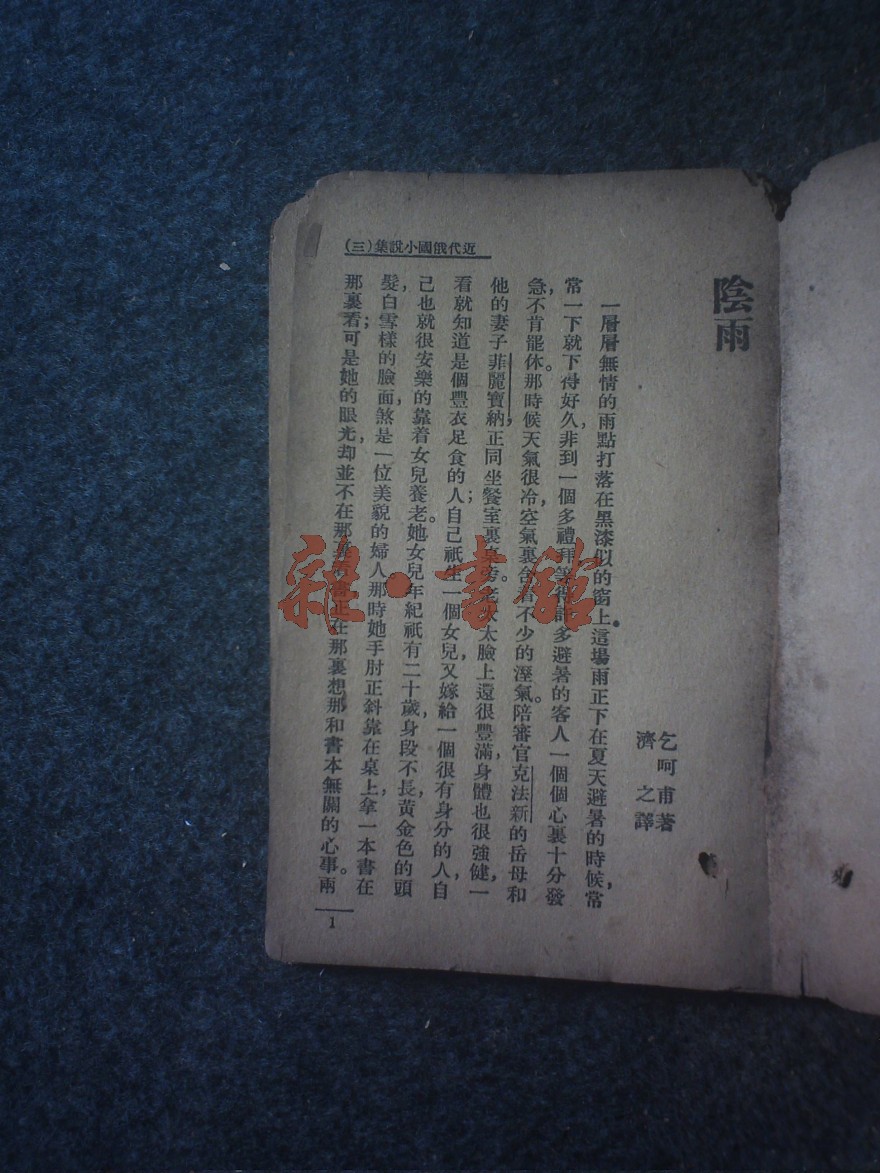 近代俄國小說集(三)
陰雨
乞呵甫著
濟之譯
一層層無情的雨點打落在黑漆似的窗上。這場雨正下在夏天避暑的時候,常
常一下就下得好久,非到一個多禮拜等得許多避暑的客人一個個心裏十分發
急,不肯罷休。那時候天氣很冷,空氣裏含着不少的溼氣。陪審官克法新的岳母和
他的妻子菲麗寶納,正同坐餐室裏桌旁。老太太臉上還很豐滿,身體也很強健,一
看就知道是個豐衣足食的人;自己祇生一個女兒,又嫁給一個很有身分的人,自
己也就很安樂的靠着女兒養老。她女兒年紀祇有二十歲,身段不長,黃金色的頭
髮,白雪樣的臉面,煞是一位美貌的婦人。那時她手肘正斜靠在桌上,拿一本書在
那裏看;可是她的眼光,却並不在那書正在那裏想那和書本無關的心事。兩
1
雜·書館